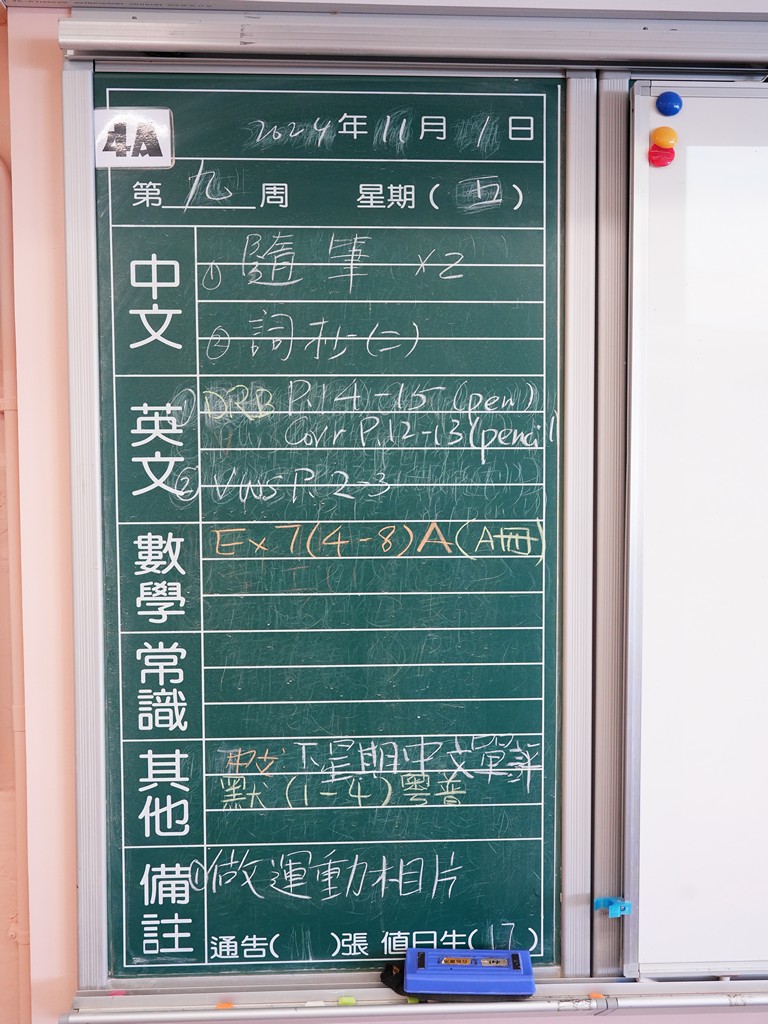 4A
2024年11月1日
第九周 星期(五)
中文
① 隨筆 ×2
② 詞抄(二)
英文
① DRB P.14-15 (pen)
Cov.r P.12-13 (pencil)
② VWS P. 2-3
數學
Ex 7(4-8)A (A冊)
常識
其他
中文 下星期中文單評
默 (1-4) 粵普
備註
① 做運動相片
通告( )張 值日生(17)